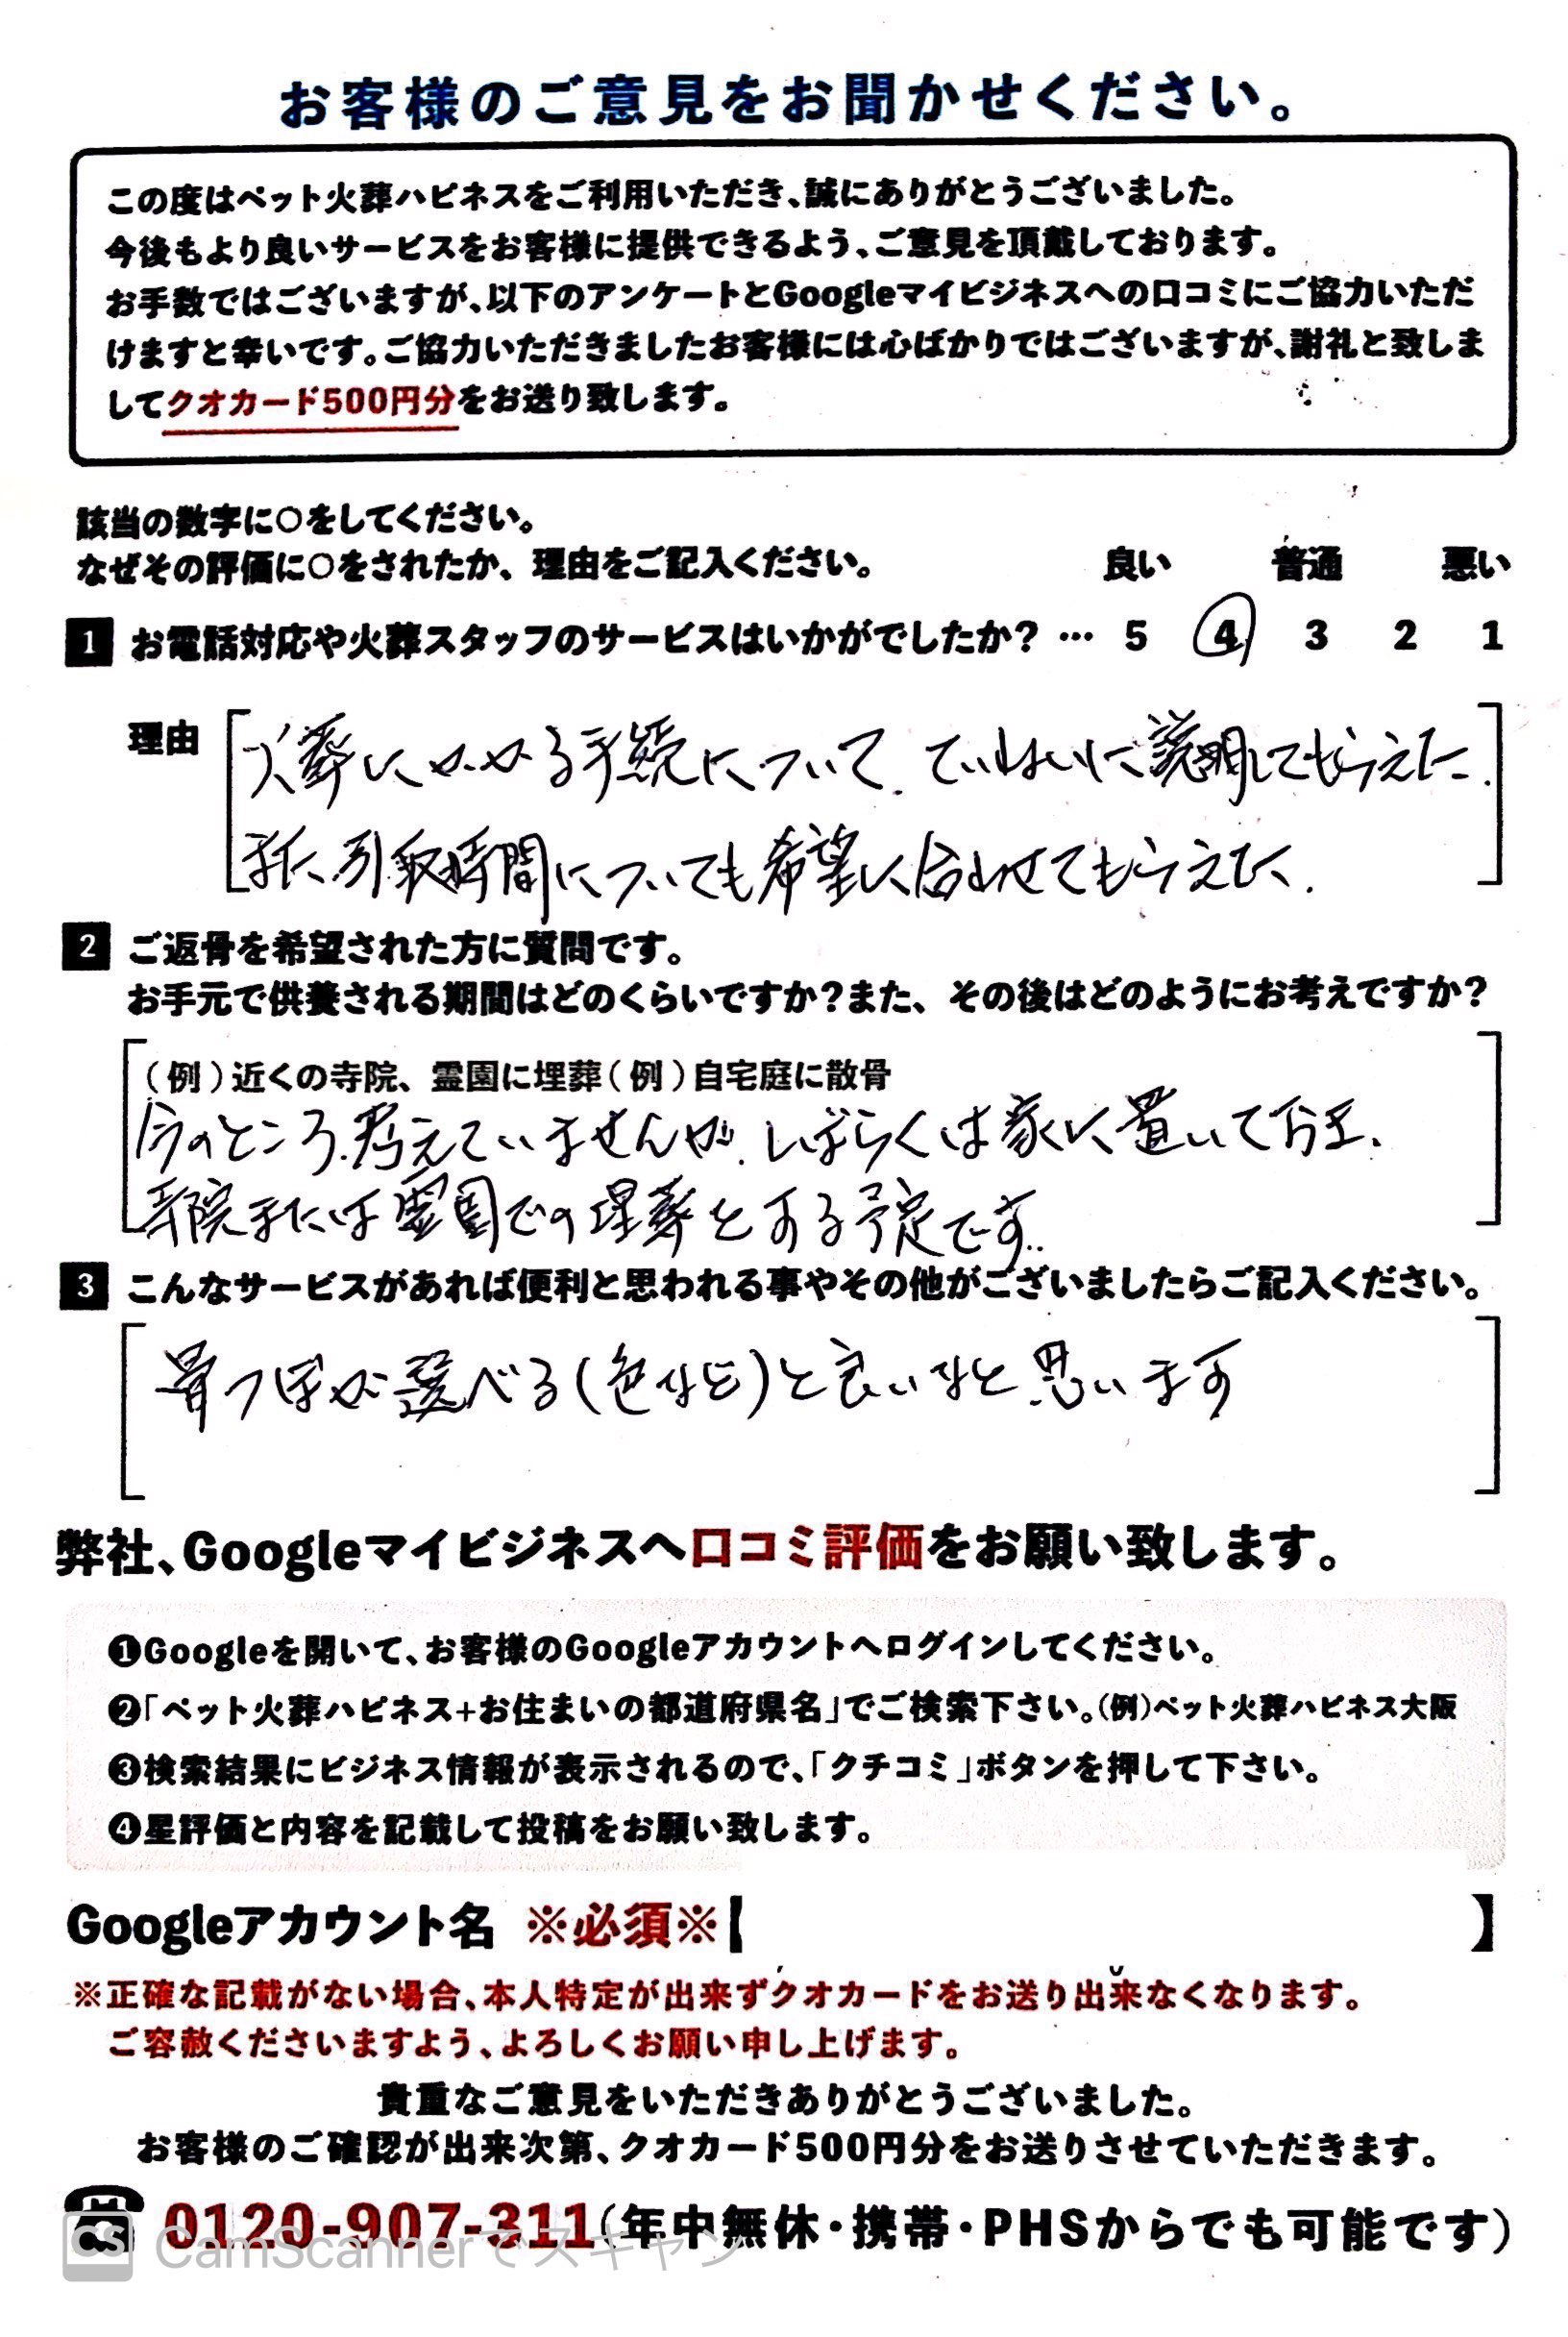 お客様のご意見をお聞かせください。
この度はペット火葬ハピネスをご利用いただき、誠にありがとうございました。
今後もより良いサービスをお客様に提供できるよう、ご意見を頂戴しております。
お手数ではございますが、以下のアンケートとGoogleマイビジネスへの口コミにご協力いただ
けますと幸いです。ご協力いただきましたお客様には心ばかりではございますが、謝礼と致しま
してクオカード500円分をお送り致します。
該当の数字に○をしてください。
なぜその評価に○をされたか、理由をご記入ください。 良い 普通 悪い
1 お電話対応や火葬スタッフのサービスはいかがでしたか? … 5 4 3 2 1
理由 火葬にかかる手続について、ていねいに説明してもらえた.
また引取時間についても希望に合わせてもらえた.
2 ご返骨を希望された方に質問です。
お手元で供養される期間はどのくらいですか?また、その後はどのようにお考えですか?
(例)近くの寺院、霊園に埋葬(例)自宅庭に散骨
今のところ、考えていませんが、しばらくは家に置いて
寺院または霊園での埋葬をする予定です.
3 こんなサービスがあれば便利と思われる事やその他がございましたらご記入ください。
骨つぼが選べる(色など)と良いなと思います
弊社、Googleマイビジネスへ口コミ評価をお願い致します。
❶Googleを開いて、お客様のGoogleアカウントへログインしてください。
❷「ペット火葬ハピネス+お住まいの都道府県名」でご検索下さい。(例)ペット火葬ハピネス大阪
❸検索結果にビジネス情報が表示されるので、「クチコミ」ボタンを押して下さい。
❹星評価と内容を記載して投稿をお願い致します。
Googleアカウント名 ※必須※【 】
※正確な記載がない場合、本人特定が出来ずクオカードをお送り出来なくなります。
ご容赦くださいますよう、よろしくお願い申し上げます。
貴重なご意見をいただきありがとうございました。
お客様のご確認が出来次第、クオカード500円分をお送りさせていただきます。
0120-907-311(年中無休・携帯・PHSからでも可能です)
CS CamScannerでスキャン